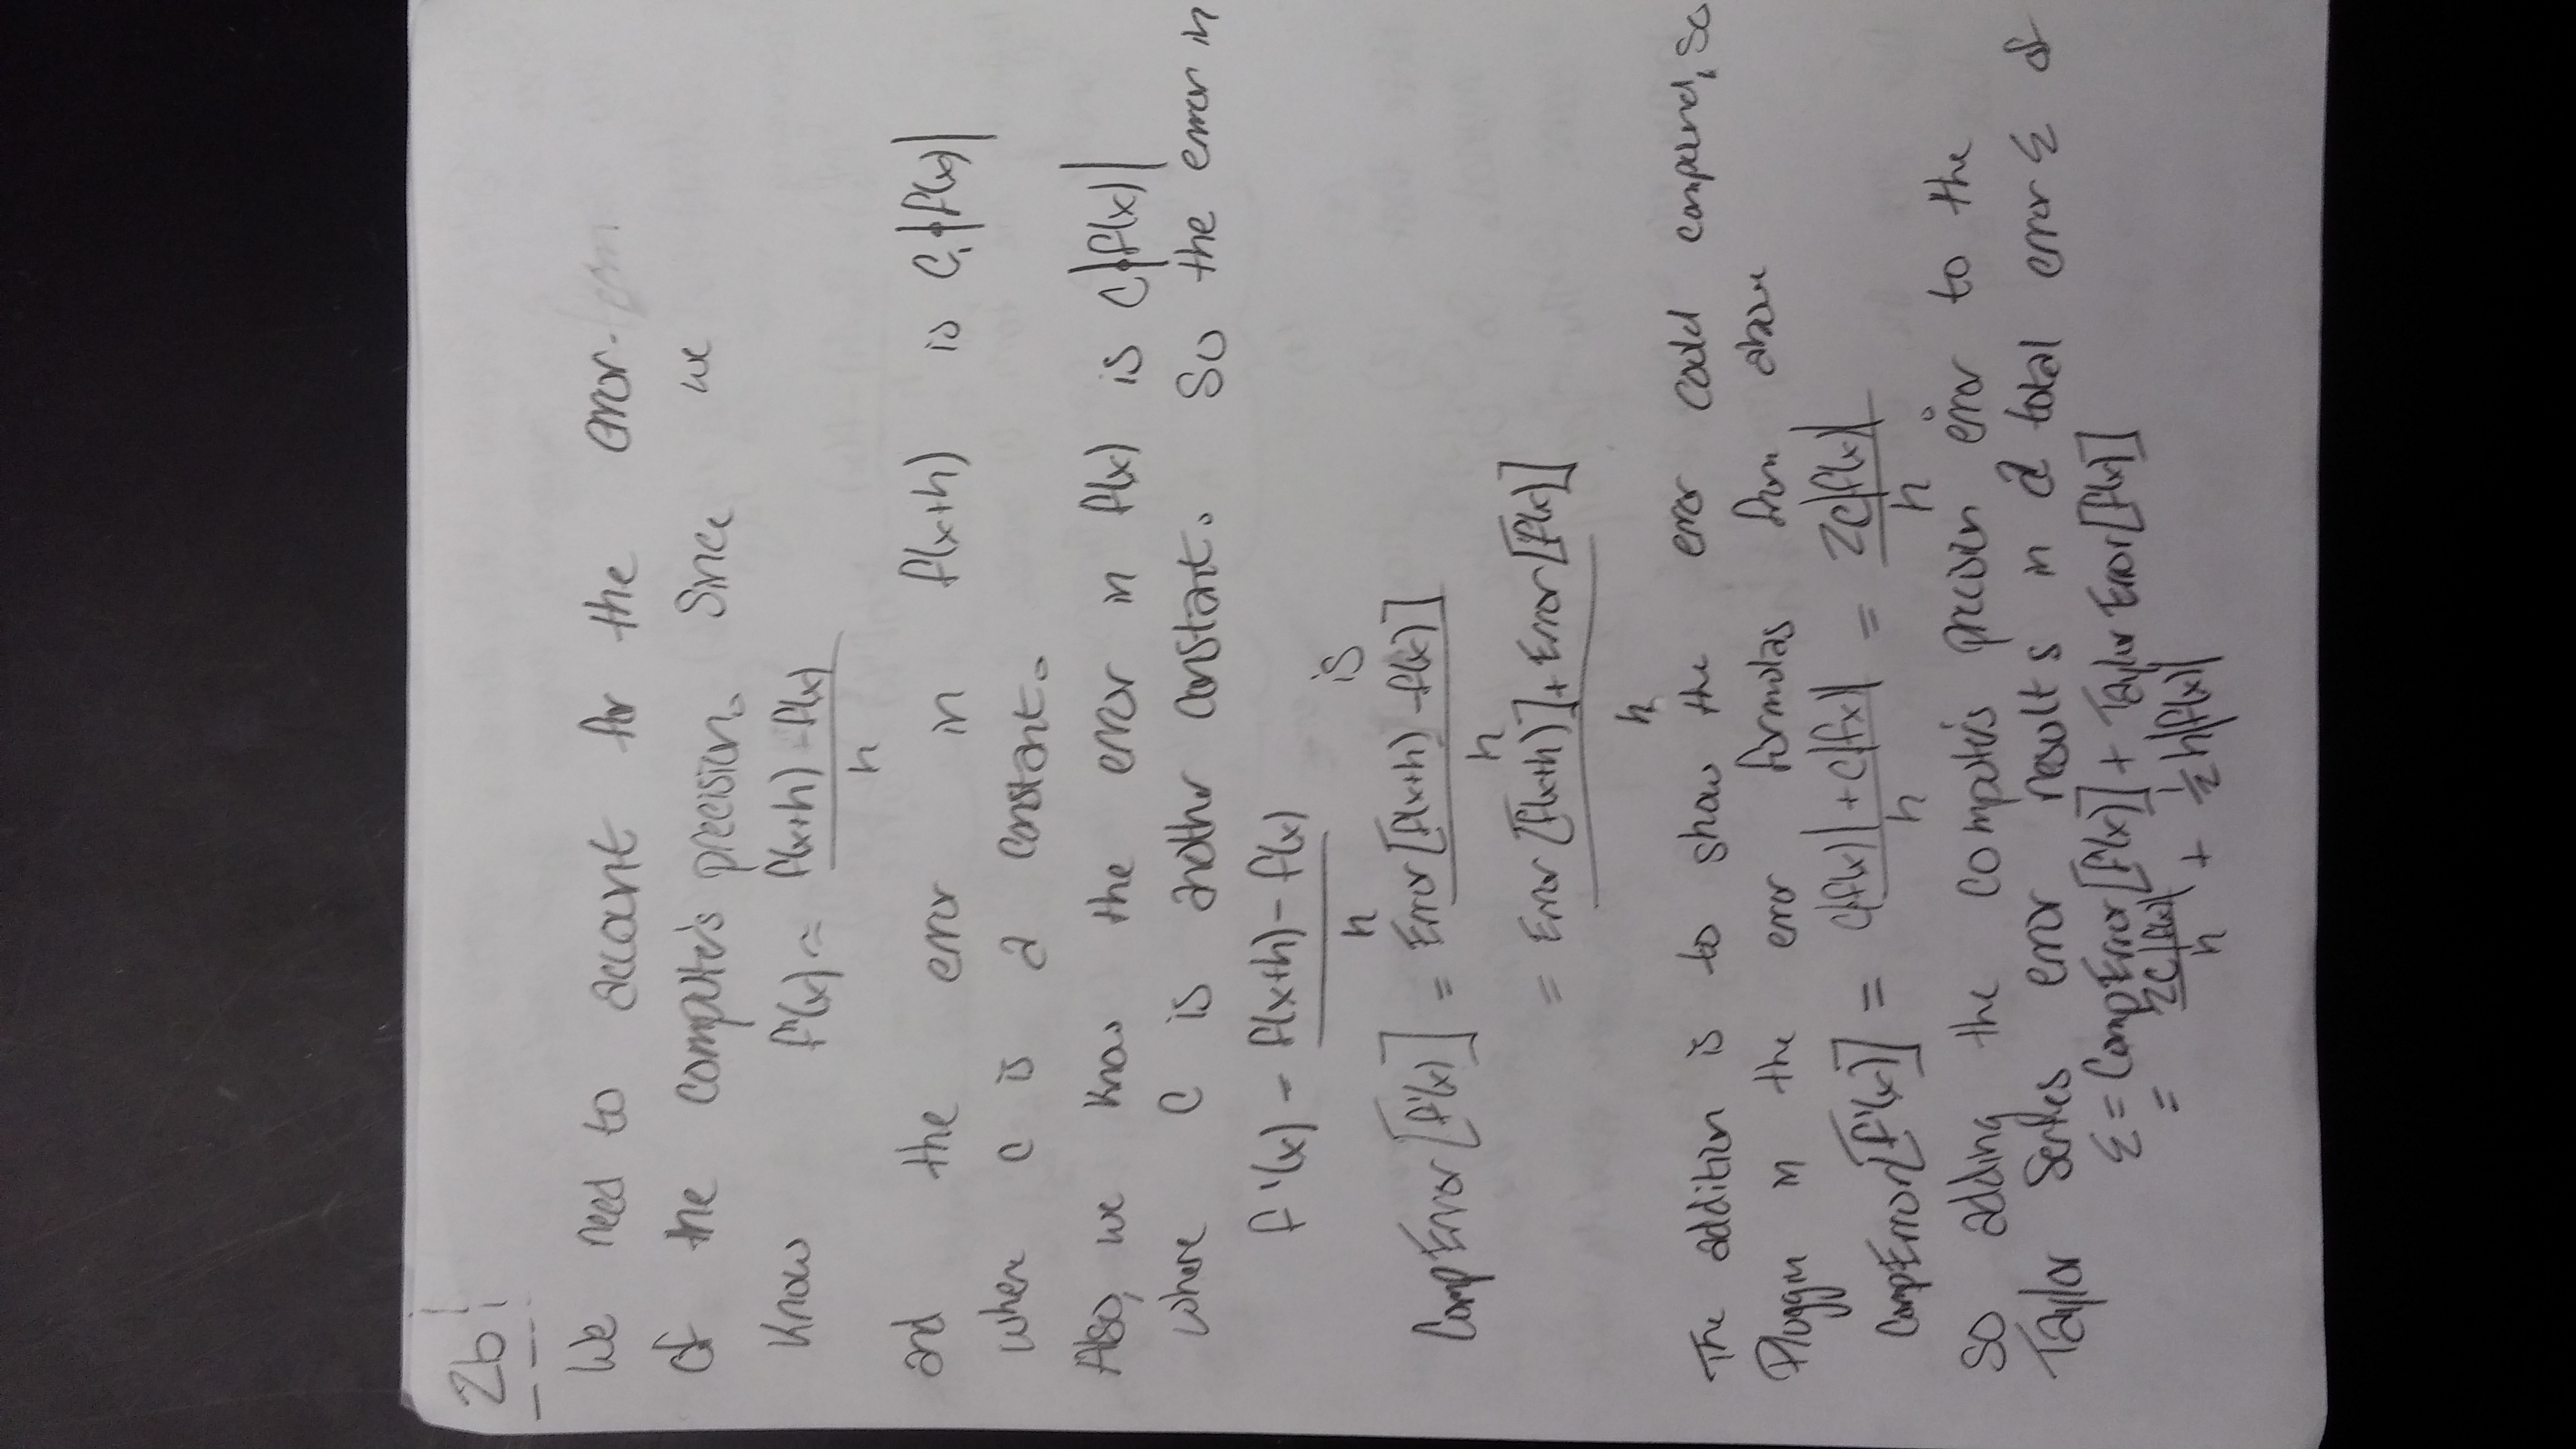 2b:
We need to account for the error-term
of the computer's precision. Since we
know f'(x) ≈ f(x+h) - f(x) / h
and the error in f(x+h) is C|f(x)|
when C is a constant.
Also, we know the error in f(x) is C|f(x)|
where C is another constant. So the error in
f'(x) - f(x+h) - f(x) / h is
CompError[f'(x)] = Error[f(x+h) - f(x)] / h
= Error[f(x+h)] + Error[f(x)] / h
The addition is to show the error could compound, so
Pluggin in the error formulas from above
CompError[f'(x)] = C|f(x)| + C|f(x)| / h = 2C|f(x)| / h
So adding the computer's precision error to the
Taylor Series error results in a total error Σ of
Σ = CompError[f'(x)] + Taylor Error[f(x)]
= 2C|f(x)| / h + 1/2 h|f(x)|